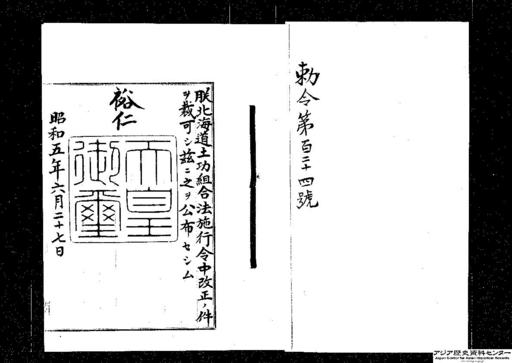 勅令第百二十四號
朕北海道土功組合法施行令中改正ノ件
ヲ裁可シ玆ニ之ヲ公布セシム
裕仁
天皇
御璽
昭和五年六月二十七日
アジア歴史資料センター
Japan Center for Asian Historical Records